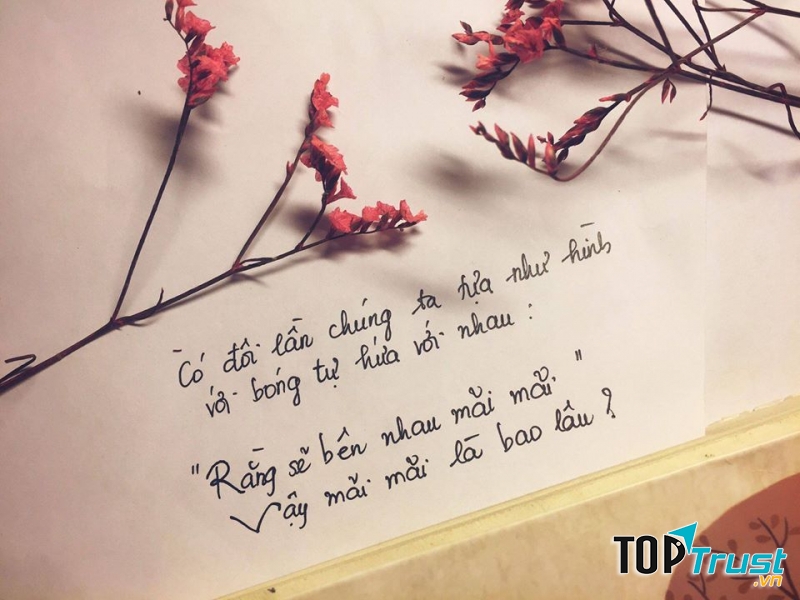 Có đôi lần chúng ta tựa như hình
với bóng tự hứa với nhau :
"Rằng sẽ bên nhau mãi mãi "
Vậy mãi mãi là bao lâu ?
TOPTrust
.vn